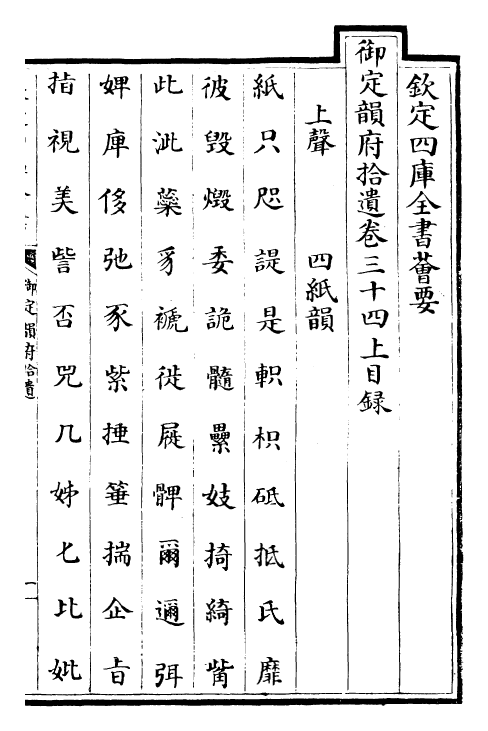 欽定四庫全書薈要
御定韻府拾遺卷三十四上目録
上聲 四紙韻
紙只咫諟是軹枳砥抵氏靡
彼毁燬委詭髓纍妓掎綺觜
此泚蘂豸褫徙屣髀爾邇弭
婢庳侈弛豕紫捶箠揣企㫖
指視美訾否兕几姊匕比妣
御定韻府拾遺
一